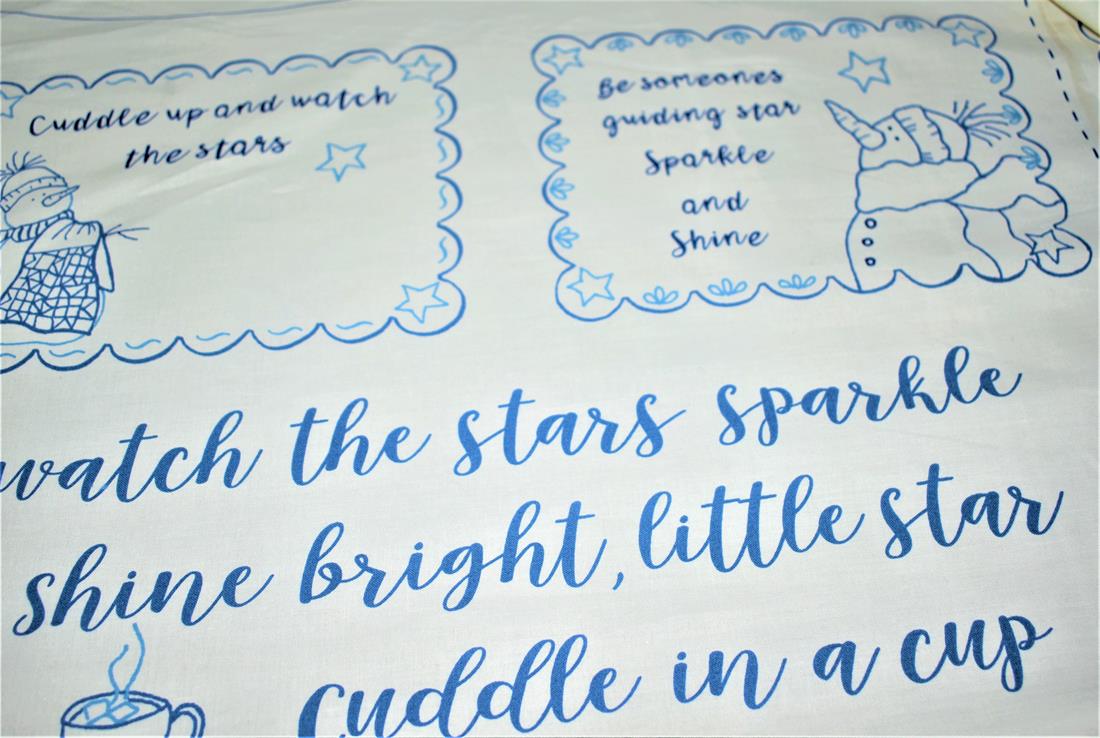 Cuddle up and watch
the stars
Be someones
guiding star
Sparkle
and
Shine
watch the stars sparkle
shine bright, little star
cuddle in a cup